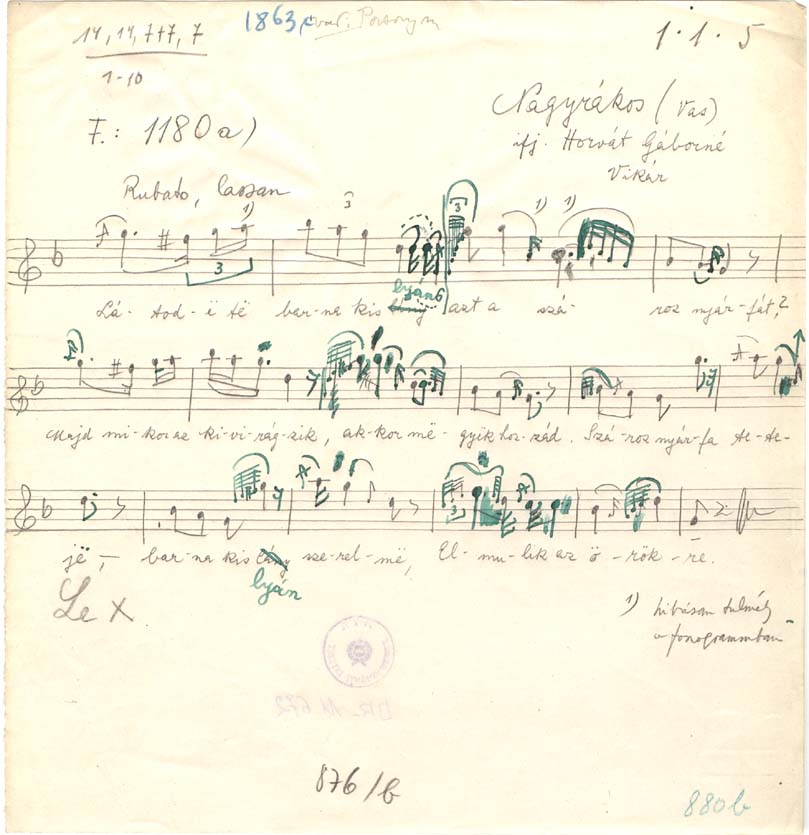 14, 14, 7+7, 7
1863, var: Pozsonym
1 · 1 · 5
1-10
F.: 1180a)
Nagyrákos (Vas)
ifj. Horvát Gáborné
Vikár
Rubato, lassan
1) 3 3 1) 1)
3
lyán6
Lá- tod-ë të bar-na kis lány azt a szá- roz nyár-fát,?
Majd mi-kor az ki-vi-rág-zik, ak-kor më- gyik hoz-zád. Szá-roz nyár-fa te-te-
jë, — bar-na kis lány sze-rel-më, El-mu-lik az ö-rök-re.
lyán
Le X
1) hibásan túlmély
a fonogrammban
BR- 11 672
876/b
880b